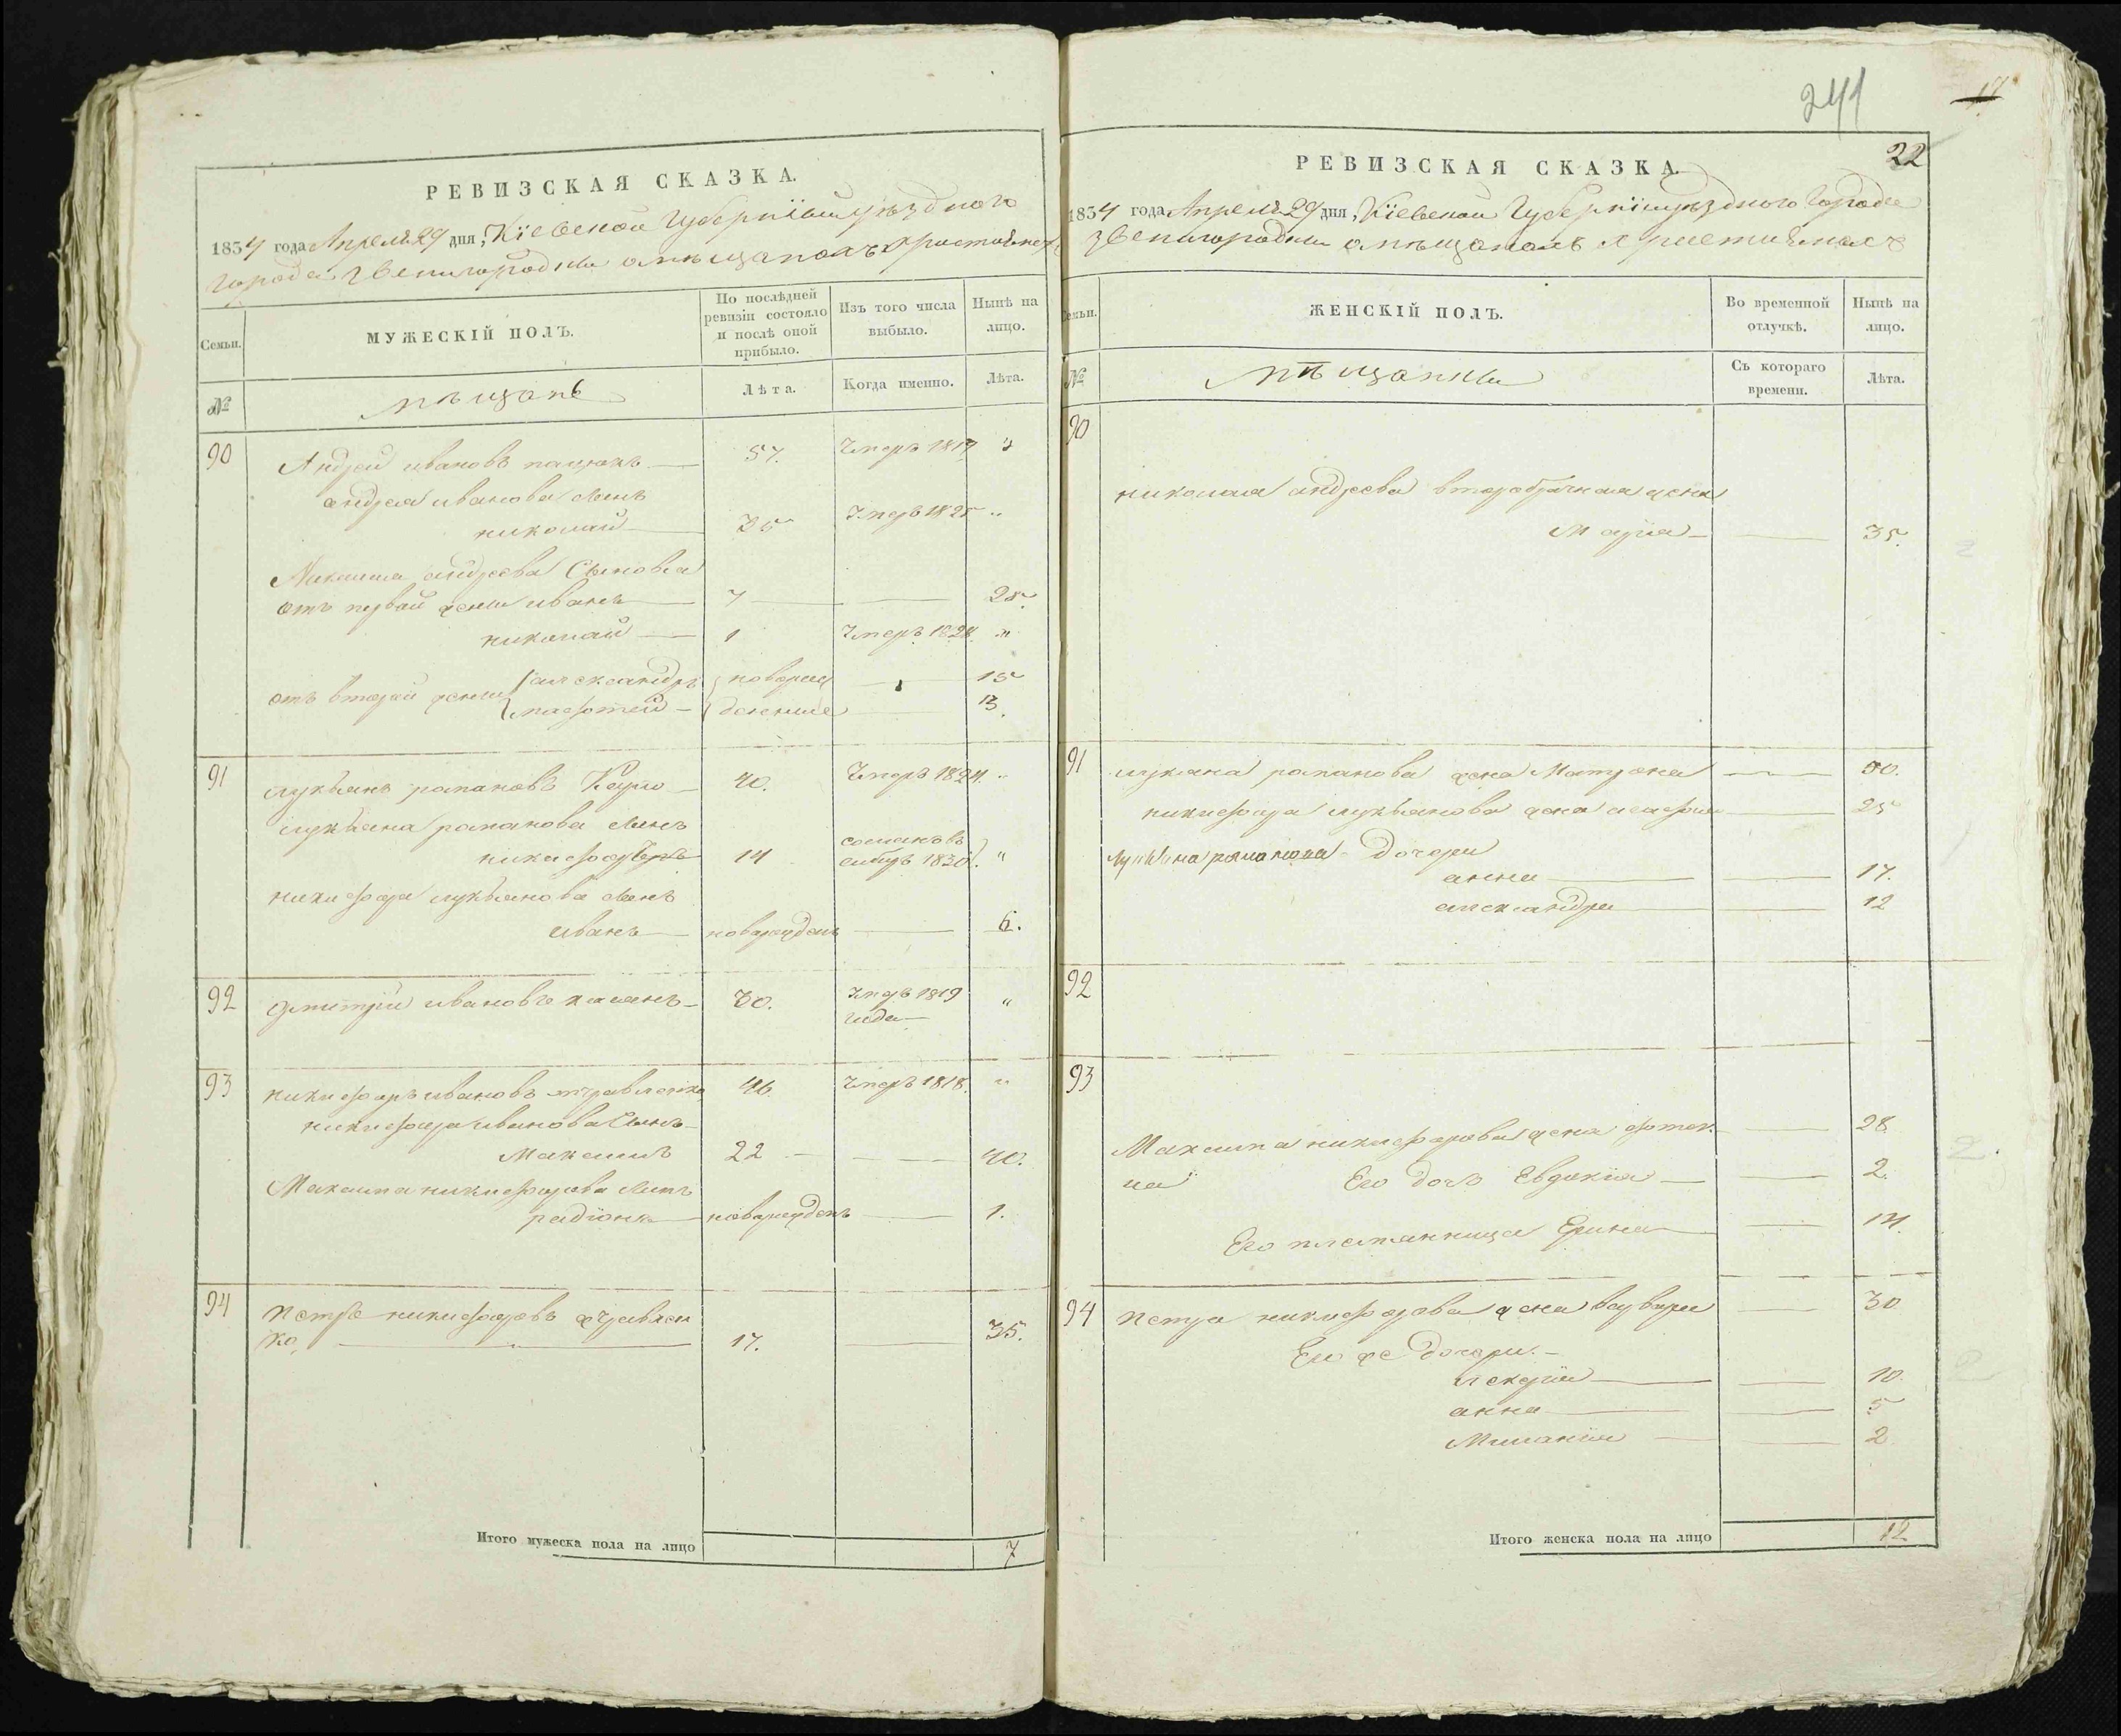 РЕВИЗСКАЯ СКАЗКА.
1834 года Апреля 29 дня, Кіевской Губерніи уѣзднаго
города Звенигородки о мѣщанахъ христианехъ
Семьи.
МУЖЕСКІЙ ПОЛЪ.
По послѣдней ревизіи состояло и послѣ оной прибыло.
Изъ того числа выбыло.
Нынѣ на лицо.
№
мѣщане
Лѣта.
Когда именно.
Лѣта.
90
Андрей ивановъ 57. Умеръ 1817 "
андрея иванова сынъ
николай 35 Умеръ 1825 "
Николая андреева Сыновья
отъ первой жены иванъ 7 25.
николай 1 Умеръ 1828 "
отъ второй жены александръ новорож 15
денные 13.
91
лукьянъ романовъ 40. Умеръ 1824 "
лукьяна романова сынъ
никифоръ 14 1830. "
никифора лукьянова сынъ
иванъ новорожденъ 6.
92
дмитрій ивановъ 30. Умеръ 1819 "
года
93
никифоръ ивановъ журавленко 46. Умеръ 1818. "
никифора иванова Сынъ
Максимъ 22 40.
Максима никифорова сынъ
радіонъ новорожденъ 1.
94
петръ никифоровъ журавлен
ко 17. 35.
Итого мужеска пола на лицо 7
241
17
22
РЕВИЗСКАЯ СКАЗКА.
1834 года Апреля 29 дня, Кіевской Губерніи уѣзднаго Города
Звенигородки о мѣщанахъ христианехъ
Семьи.
ЖЕНСКІЙ ПОЛЪ.
Во временной отлучкѣ.
Нынѣ на лицо.
№
мѣщанки
Съ котораго времени.
Лѣта.
90
николая андреева второбрачная жена
Марія 35.
91
лукяна романова жена Матрона 50.
никифора лукьянова жена 25
лукьяна романова дочери
анна 17.
александра 12
92
93
Максима никифорова жена 28
Его дочь Евдокія 2.
Его племянница Ерина 14.
94
петра никифорова жена варвара 30
Его же дочери.
лекерія 10.
анна 5
Миланія 2.
Итого женска пола на лицо 12